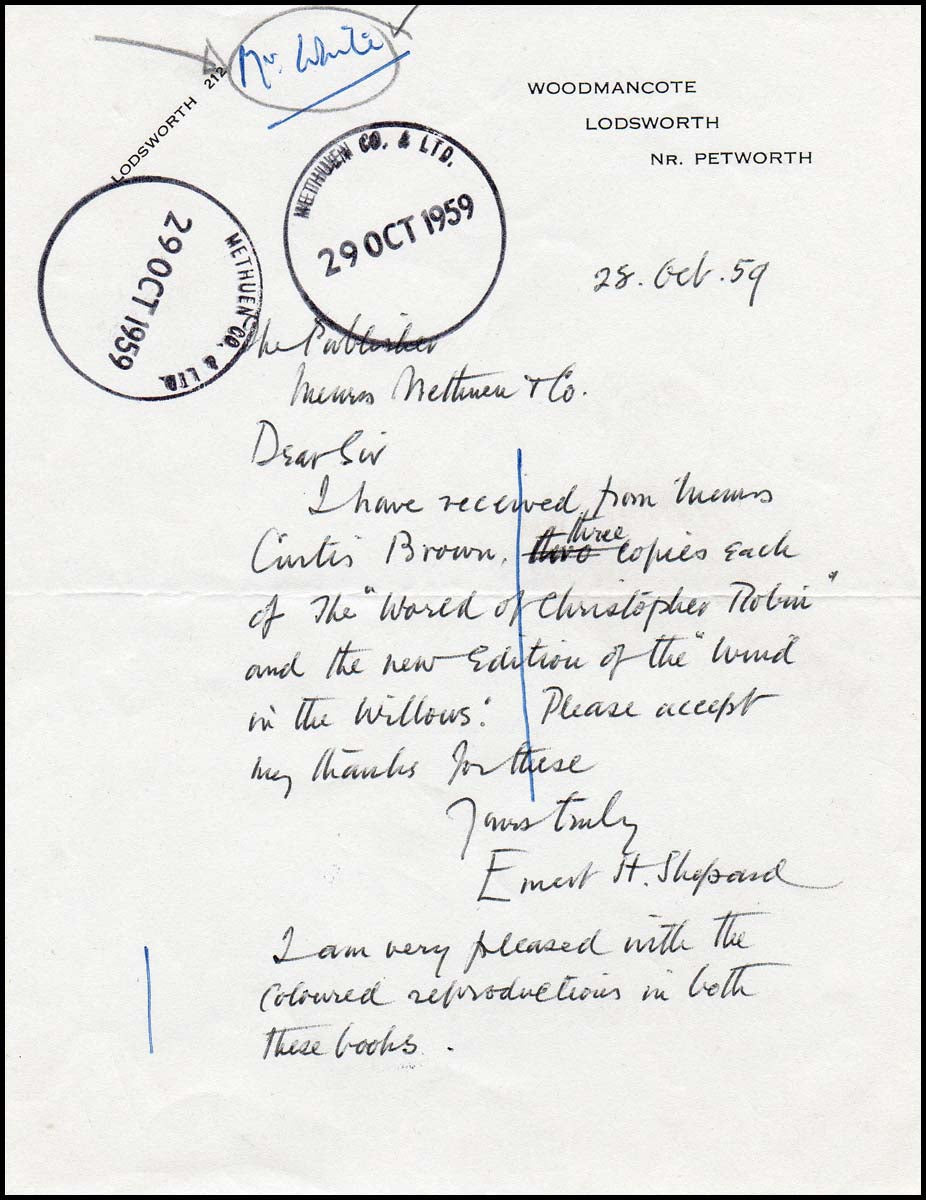 Mr. White
LODSWORTH 212
WOODMANCOTE
LODSWORTH
NR. PETWORTH
METHUEN CO. & LTD.
29 OCT 1959
METHUEN CO. & LTD.
29 OCT 1959
28. Oct. 59
The Publisher
Messrs Methuen & Co.
Dear Sir
I have received from Messrs
three
Curtis Brown, two copies each
of The "World of Christopher Robin"
and the new Edition of the "Wind
in the Willows". Please accept
my thanks for these
Yours truly
Ernest H. Shepard
I am very pleased with the
coloured reproductions in both
these books.